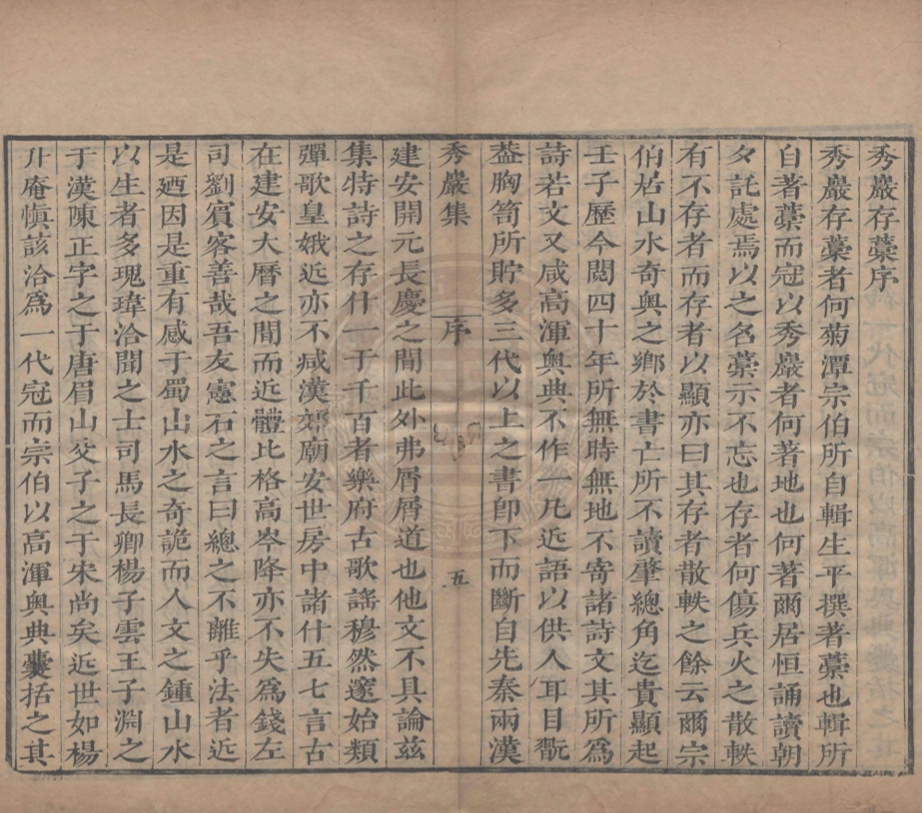 秀巖存藁序
秀巖存藁者何菊潭宗伯所自輯生平撰著藁也輯所
自著藁而冠以秀巖者何著地也何著爾居恒誦讀朝
夕託處焉以之名藁示不忘也存者何傷兵火之散軼
有不存者而存者以顯亦曰其存者散軼之餘云爾宗
伯居山水奇奧之鄉於書亡所不讀肇總角迄貴顯起
壬子歷今閱四十年所無時無地不寄諸詩文其所為
詩若文又咸高渾奧典不作一凡近語以供人耳目翫
葢胸笥所貯多三代以上之書即下而斷自先秦兩漢
秀巖集
序
五
建安開元長慶之間此外弗屑屑道也他文不具論茲
集特詩之存什一于千百者樂府古歌謠穆然邃始類
彈歌皇娥近亦不減漢郊廟安世房中諸什五七言古
在建安大曆之間而近體比格高岑降亦不失為錢左
司劉賓客善哉吾友憲石之言曰總之不離乎法者近
是廼因是重有感于蜀山水之奇詭而人文之鍾山水
以生者多瑰瑋洽聞之士司馬長卿楊子雲王子淵之
于漢陳正字之于唐眉山父子之于宋尚矣近世如楊
升庵慎該洽為一代冠而宗伯以高渾奧典囊括之其